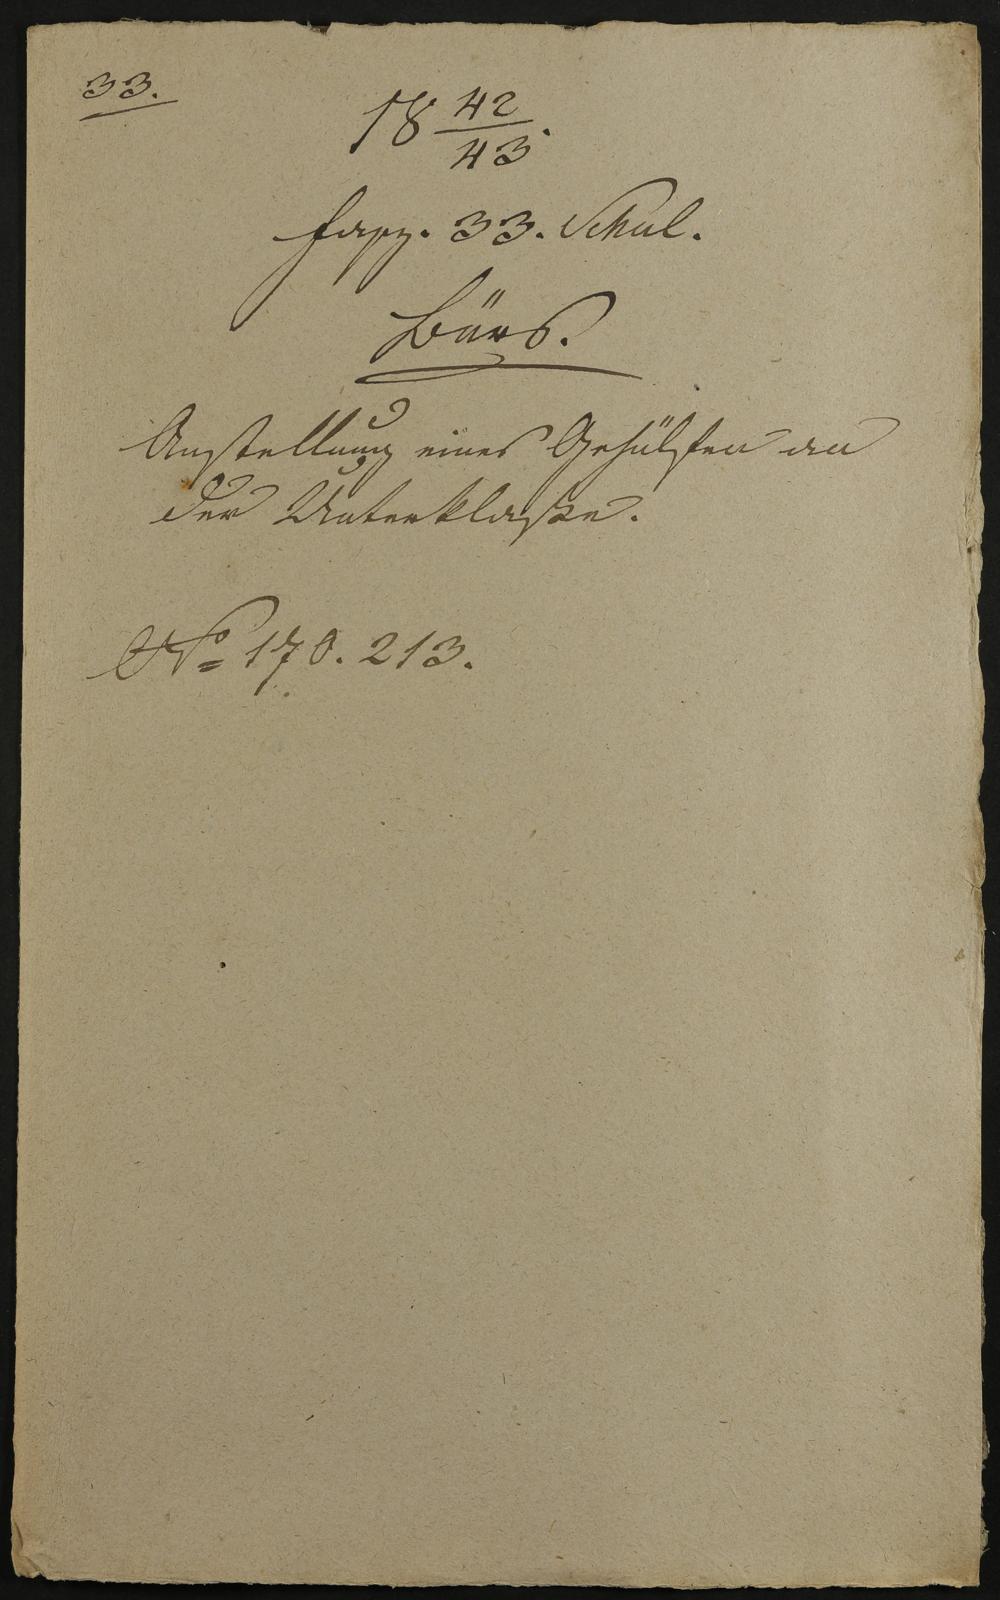 33.
18 42/43.
Fasz. 33. Schul.
Bürs.
Anstellung eines Gehülfen an
der Unterklaße.
No 170. 213.